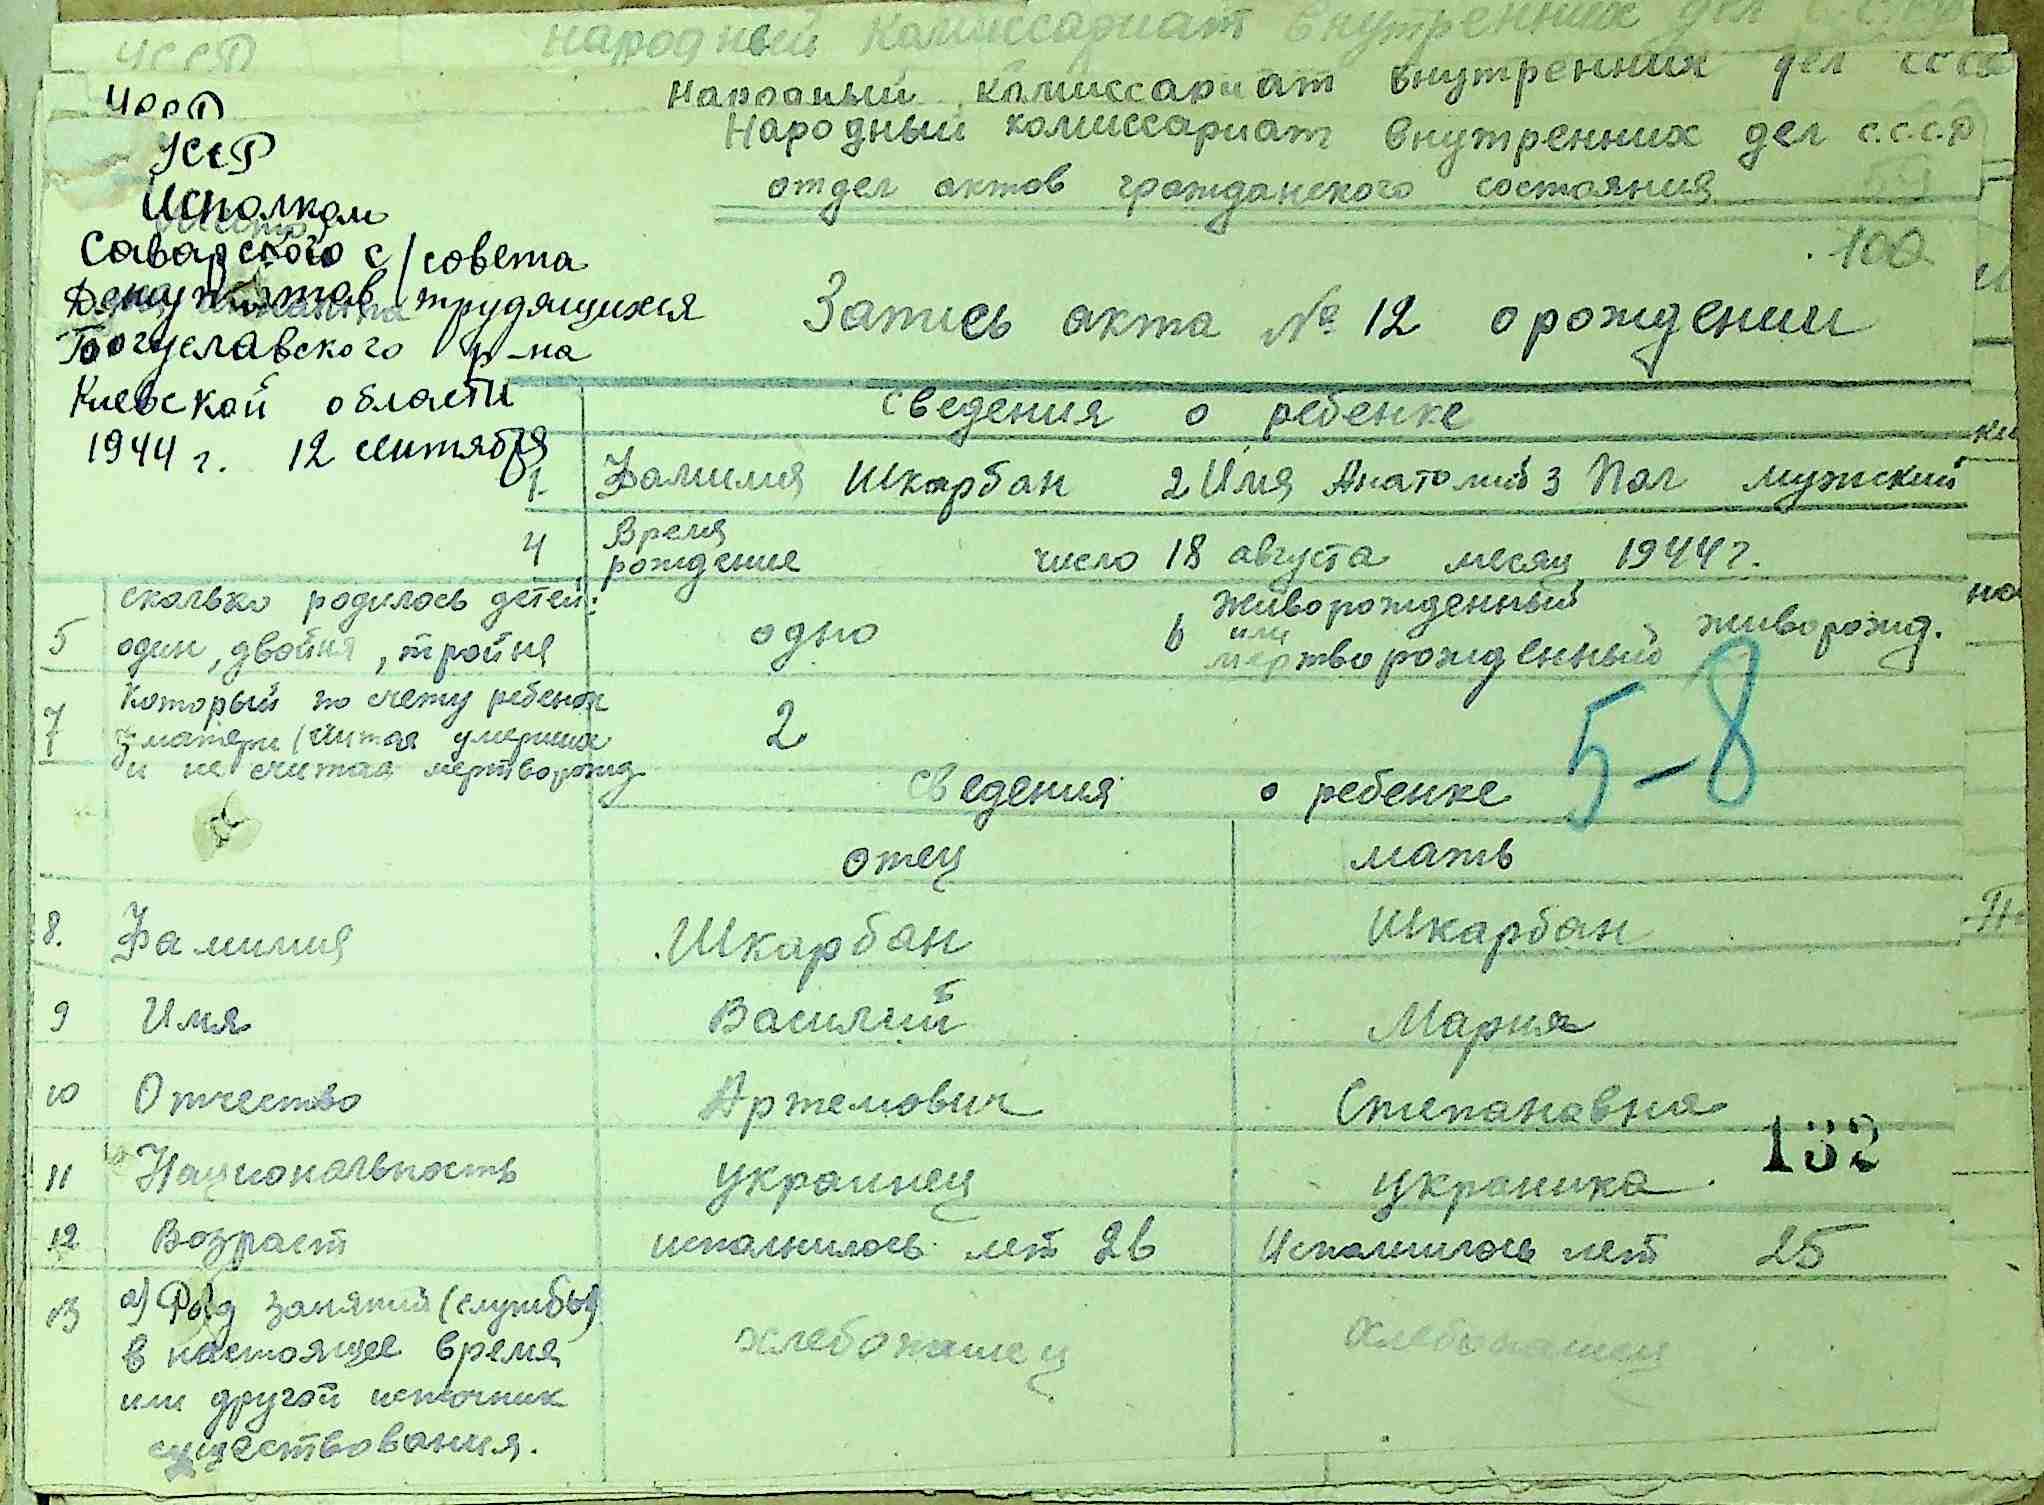 УССР народный комиссариат внутренних дел
УССР Народный комиссариат внутренних дел СССР
УССР Народный комиссариат внутренних дел С.С.С.Р
отдел актов гражданского состояния
Исполком
Саварского с/совета
трудящихся
Богуславского р-на
Киевской области
1944 г. 12 сентября
100
Запись акта № 12 о рождении
сведения о ребенке
1. Фамилия Шкарбан 2 Имя Анатолий 3 Пол мужский
4 Время рождение число 18 августа месяц 1944 г.
5 сколько родилось детей: один, двойня, тройня одно 6 живорожденный или мертворожденный живорожд.
7 Который по счету ребенок у матери (считая умерших и не считая мертворожд. 2
5-8
сведения о ребенке
отец мать
8. Фамилия Шкарбан Шкарбан
9 Имя Василий Мария
10 Отчество Артемович Степановна
132
11 Национальность украинец украинка
12 Возраст исполнилось лет 26 Исполнилось лет 25
13 а) Род занятий (службы)
в настоящее время хлебопашец хлебопашец
или другой источник
существования.